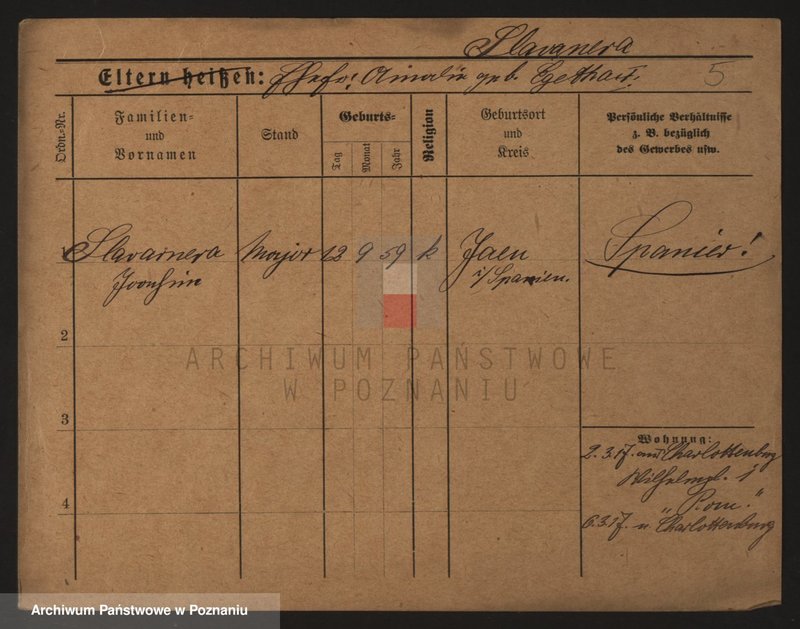 Slavanera
Eltern heißen: Ehefr: Amalie geb. 5
Ordn.-Nr.
Familien-
und
Vornamen
Stand
Geburts-
Tag
Monat
Jahr
Religion
Geburtsort
und
Kreis
Persönliche Verhältnisse
z. B. bezüglich
des Gewerbes usw.
1 Slavarnera Major 12 9 59 k Jaen Spanier!
Joachim i/Spanien.
2
ARCHIWUM PAŃSTWOWE
W POZNANIU
3
Wohnung:
2.3.17. aus Charlottenburg
Wilhelmpl. 1
"Rom."
4
6.3.17. n Charlottenburg
Archiwum Państwowe w Poznaniu